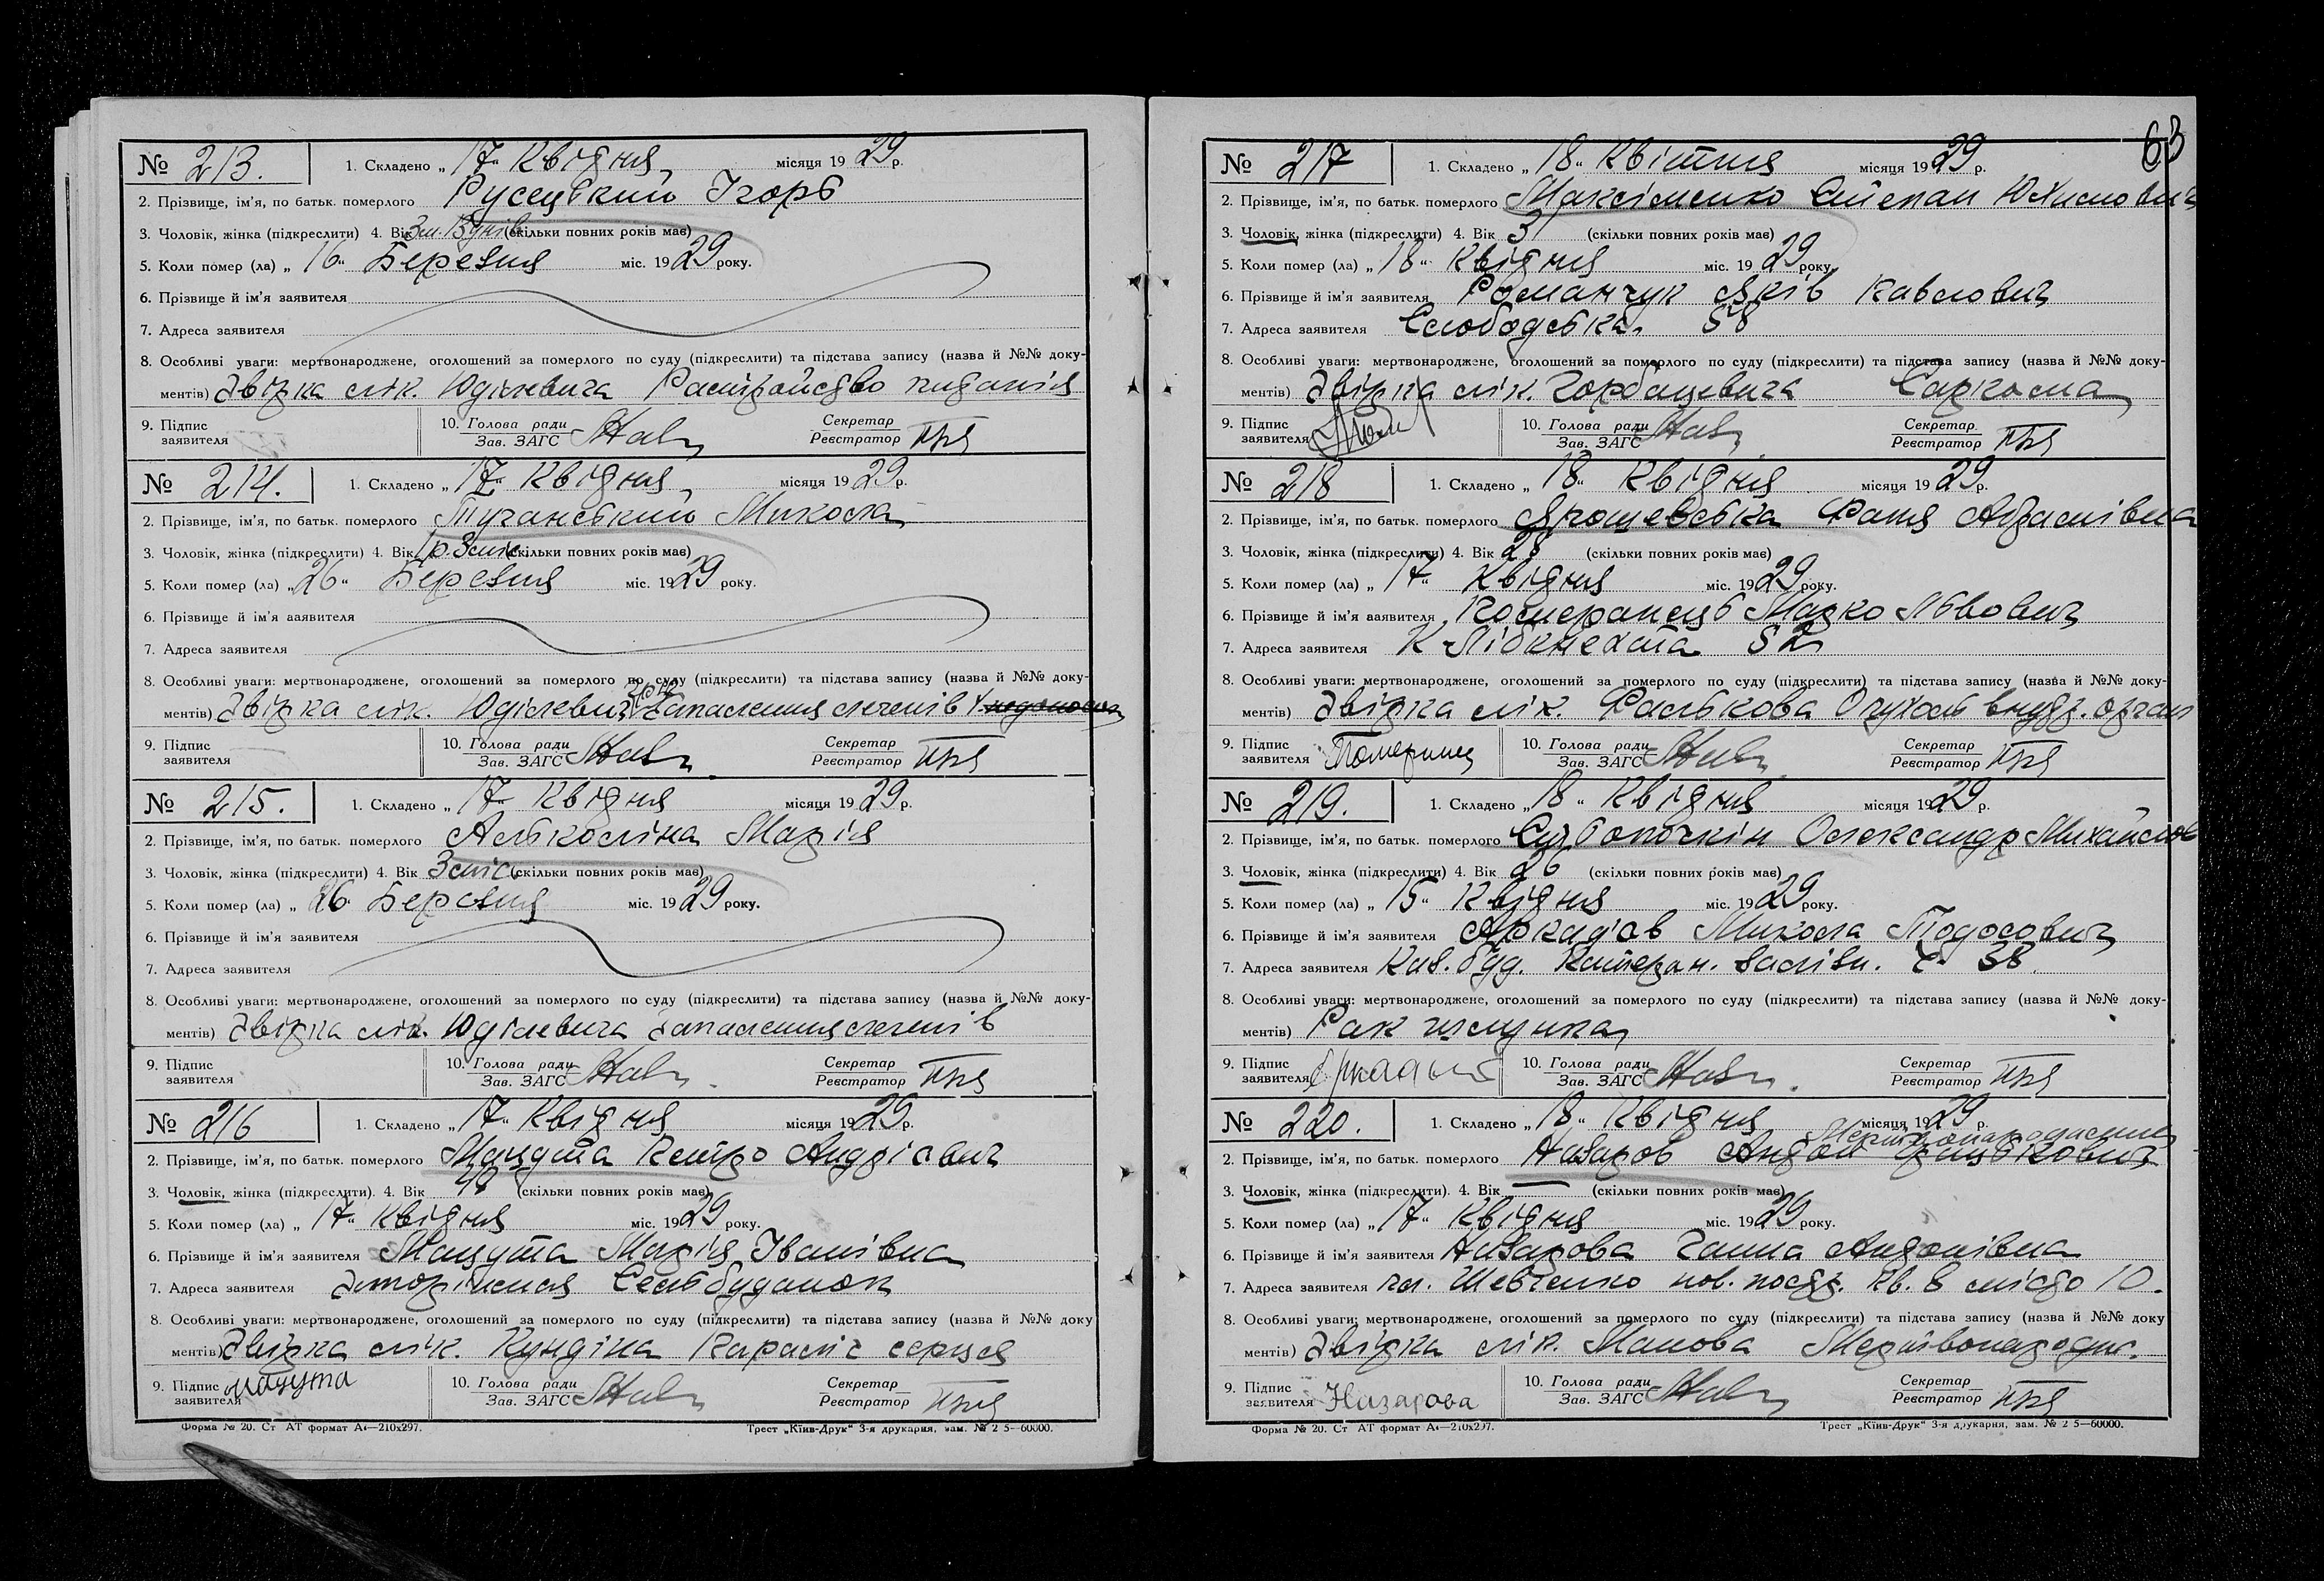 № 213. 1. Складено „17“ Квітня місяця 1929 р.
2. Прізвище, ім'я, по батьк. померлого Русецький Ігорь
3. Чоловік, жінка (підкреслити) 4. Вік 3 м. 13 днів (скільки повних років має)
5. Коли помер (ла) „16“ Березня міс. 1929 року.
6. Прізвище й ім'я заявителя
7. Адреса заявителя
8. Особливі уваги: мертвонароджене, оголошений за померлого по суду (підкреслити) та підстава запису (назва й №№ доку-
ментів) Двірка лік. Юділевича Растройство питанія
9. Підпис заявителя 10. Голова ради Зав. ЗАГС Секретар Реєстратор
№ 214. 1. Складено „17“ Квітня місяця 1929 р.
2. Прізвище, ім'я, по батьк. померлого Тучанський Микола
3. Чоловік, жінка (підкреслити) 4. Вік 1 р. 3 міс. (скільки повних років має)
5. Коли помер (ла) „26“ Березня міс. 1929 року.
6. Прізвище й ім'я заявителя
7. Адреса заявителя
8. Особливі уваги: мертвонароджене, оголошений за померлого по суду (підкреслити) та підстава запису (назва й №№ доку-
ментів) Двірка лік. Юділевич Запалення легенів
9. Підпис заявителя 10. Голова ради Зав. ЗАГС Секретар Реєстратор
№ 215. 1. Складено „17“ Квітня місяця 1929 р.
2. Прізвище, ім'я, по батьк. померлого Альколіна Марія
3. Чоловік, жінка (підкреслити) 4. Вік 3 міс. (скільки повних років має)
5. Коли помер (ла) „26“ Березня міс. 1929 року.
6. Прізвище й ім'я заявителя
7. Адреса заявителя
8. Особливі уваги: мертвонароджене, оголошений за померлого по суду (підкреслити) та підстава запису (назва й №№ доку-
ментів) Двірка лік. Юділевича Запалення легенів
9. Підпис заявителя 10. Голова ради Зав. ЗАГС Секретар Реєстратор
№ 216 1. Складено „17“ Квітня місяця 1929 р.
2. Прізвище, ім'я, по батьк. померлого Мацута Петро Андрієвич
3. Чоловік, жінка (підкреслити). 4. Вік (скільки повних років має)
5. Коли помер (ла) „17“ Квітня міс. 1929 року.
6. Прізвище й ім'я заявителя Мацута Марія Іванівна
7. Адреса заявителя Сельбуданок
8. Особливі уваги: мертвонароджене, оголошений за померлого по суду (підкреслити) та підстава запису (назва й №№ доку
ментів) Двірка лік. Кундіна Параліч серця
9. Підпис заявителя Мацута 10. Голова ради Зав. ЗАГС Секретар Реєстратор
Форма № 20. Ст АТ формат А4—210x297. Трест „Київ-Друк“ 3-я друкарня, зам. № 2 5—60000.
63
№ 217 1. Складено „18“ Квітня місяця 1929 р.
2. Прізвище, ім'я, по батьк. померлого Максіменко Степан Юхимович
3. Чоловік, жінка (підкреслити) 4. Вік 31 (скільки повних років має)
5. Коли помер (ла) „18“ Квітня міс. 1929 року.
6. Прізвище й ім'я заявителя Романчук Яків Павлович
7. Адреса заявителя Слободська 58
8. Особливі уваги: мертвонароджене, оголошений за померлого по суду (підкреслити) та підстава запису (назва й №№ доку-
ментів) Двірка лік. Горбацевича Саркома
9. Підпис заявителя 10. Голова ради Зав. ЗАГС Секретар Реєстратор
№ 218 1. Складено „18“ Квітня місяця 1929 р.
2. Прізвище, ім'я, по батьк. померлого Ярошевська Фаня Абрамівна
3. Чоловік, жінка (підкреслити) 4. Вік 28 (скільки повних років має)
5. Коли помер (ла) „17“ Квітня міс. 1929 року.
6. Прізвище й ім'я заявителя Померанець Марко Львович
7. Адреса заявителя К Лібкнехта 52
8. Особливі уваги: мертвонароджене, оголошений за померлого по суду (підкреслити) та підстава запису (назва й №№ доку-
ментів) Двірка лік. Фалькова Опухоль внутр. орган
9. Підпис заявителя Померанец 10. Голова ради Зав. ЗАГС Секретар Реєстратор
№ 219. 1. Складено „18“ Квітня місяця 1929 р.
2. Прізвище, ім'я, по батьк. померлого Олександр Михайлов
3. Чоловік, жінка (підкреслити) 4. Вік 26 (скільки повних років має)
5. Коли помер (ла) „15“ Квітня міс. 1929 року.
6. Прізвище й ім'я заявителя Аркадієв Микола Тодосович
7. Адреса заявителя Каз. буд. Катерин. залізн. 38
8. Особливі уваги: мертвонароджене, оголошений за померлого по суду (підкреслити) та підстава запису (назва й №№ доку-
ментів) Рак шлунка
9. Підпис заявителя 10. Голова ради Зав. ЗАГС Секретар Реєстратор
№ 220. 1. Складено „18“ Квітня місяця 1929 р.
Мертвонароджений
2. Прізвище, ім'я, по батьк. померлого Назаров
3. Чоловік, жінка (підкреслити). 4. Вік — (скільки повних років має)
5. Коли помер (ла) „17“ Квітня міс. 1929 року.
6. Прізвище й ім'я заявителя Назарова Ганна Антонівна
7. Адреса заявителя пл. Шевченко нов. постр. кв. 10.
8. Особливі уваги: мертвонароджене, оголошений за померлого по суду (підкреслити) та підстава запису (назва й №№ доку
ментів) Двірка лік. Манова Мертвонароджн.
9. Підпис заявителя Назарова 10. Голова ради Зав. ЗАГС Секретар Реєстратор
Форма № 20. Ст АТ формат А4—210x297. Трест „Київ-Друк“ 3-я друкарня, зам. № 2 5—60000.